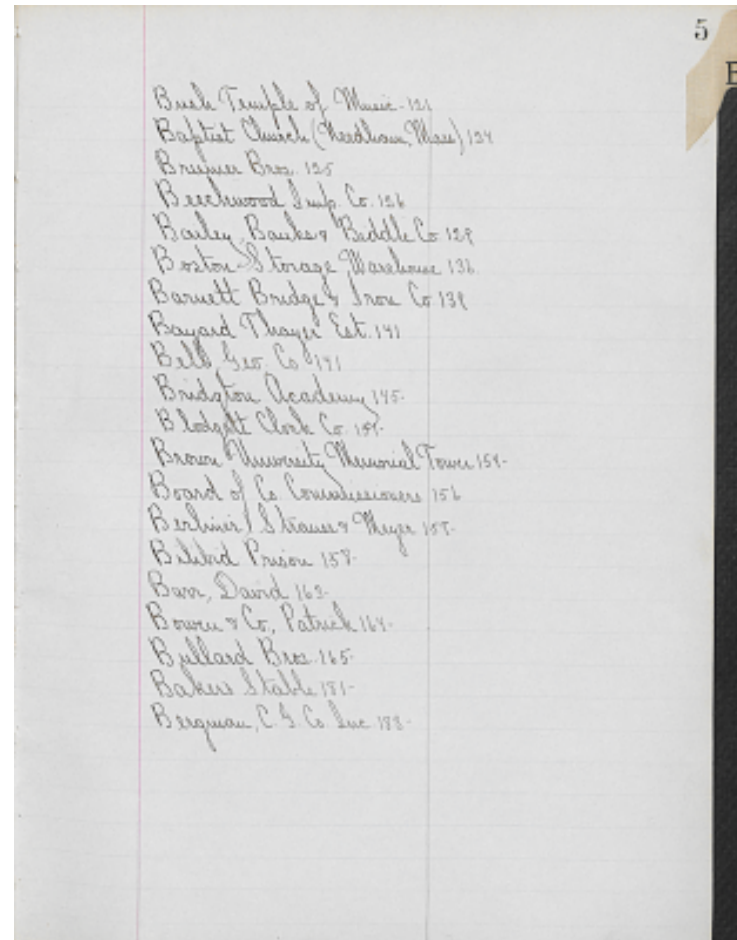 5
B
Bush Temple of Music - 121
Baptist Church (Needham, Mass) 124
Bremer Bros. 125
Beechwood Imp. Co. 126
Bailey, Banks & Biddle Co 129
Boston Storage Warehouse 136
Barnett Bridge & Iron Co 139
Bayard Thayer Est. 141
Bell, Geo. Co 141
Bridgton Academy 145-
Blodgett Clock Co.
Brown University Memorial Tower 154-
Board of Co. Commissioners 156
Berliner, Strauss & Meyer 157-
Bilibid Prison 158-
Barr, David 162-
Bowen & Co, Patrick 164-
Bullard Bros. 165-
Bakers Stable 181-
Bergman, C. G. Co. Inc. 188-